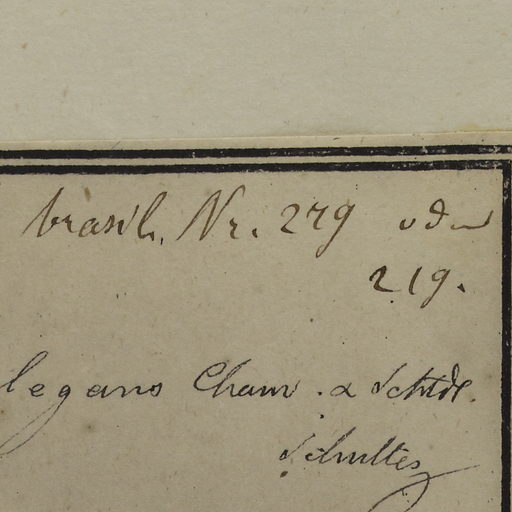 brasil. Nr. 279 oder
219.
legans Cham. & Schldl.
Schultes